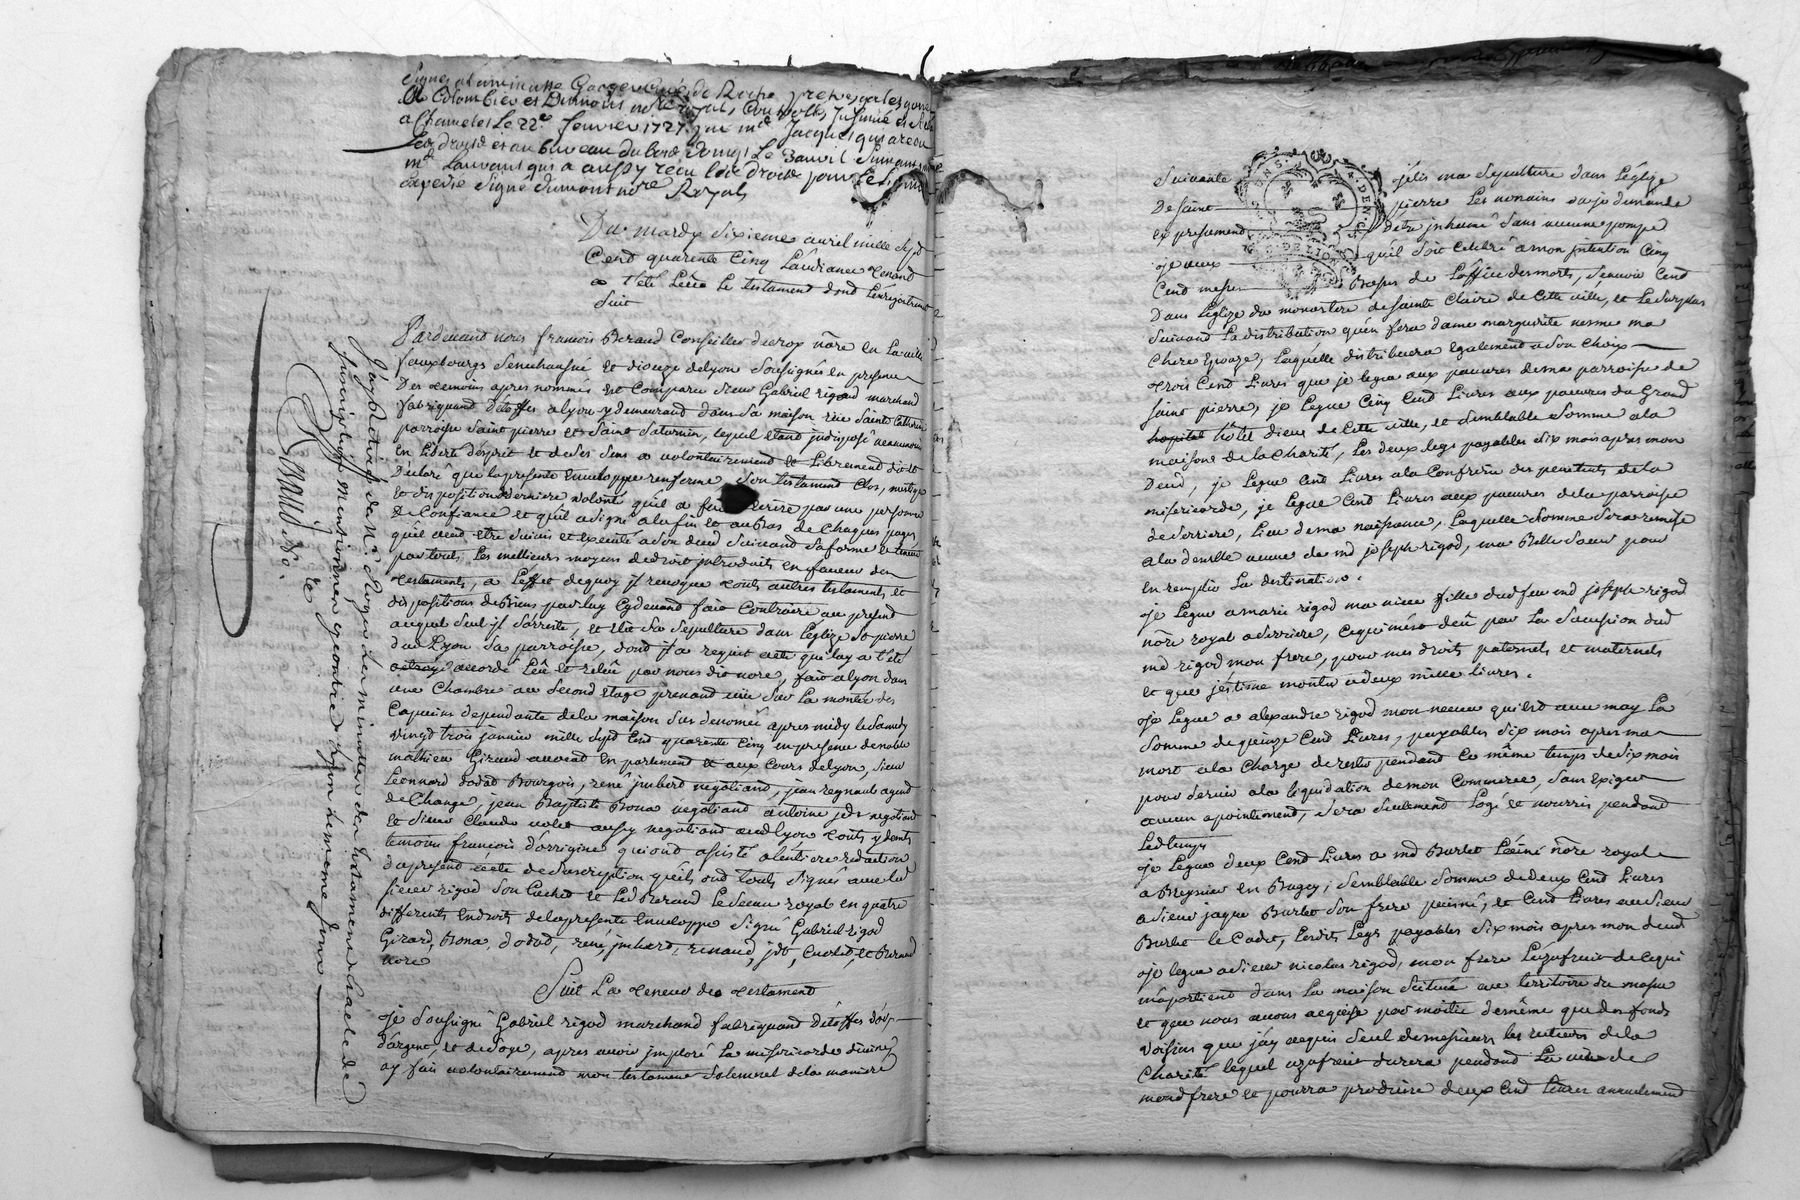 Signes a la minutte
de Colombier et Dumont no.re royal, Controllé, Insinué
a Chamelet Le 22e fevrier 1727 par me Jacquet qui a receu
Les droits et au bureau du bois d'oingt Le 3 avril suivant
me Lauvant qui a aussy receu les droits
Expedié Signé dumont no.re Royal
Du mardy sixieme avril mille sept
Cend quarente Cinq Laudiance tenand
a été Leüe Le testament dond Lenregistrement
suit
Pardevand nous francois Beraud Conseiller du roy nore en La ville
fauxbourgs Senechaussé et dioceze de Lyon Soussignés en presence
Des temoins apres nommés est Comparu Sieur Gabriel rigod marchand
fabriquand D'étoffes a lyon y demeurand dans Sa maison rüe Sainte Catherine
parroisse Saint pierre et Saint Saturnin, lequel étand indisposé neanmoins
en Liberté d'ésprit et de ses Sens a volontairement et Librement dit et
Déclaré que la presente Enveloppe renferme Son testament Clos, mistique
et disposition de derniere volonté qu'il a fait écrire par une personne
De Confiance et qu'il a signé a la fin et au Bas de Chaques pages
qu'il veut etre Suivis et Executé a son deced Suivand sa forme et teneur
par touts Les meilleurs moyens de droit introduits en faveur des
testaments, a L'éffet de quoy il revoque touts autres testaments et
dispositions de Biens par luy Cydevand fait Contraire au present
auquel Seul il S'arreste, et Elit Sa Sepulture dans L'églize St pierre
dud Lyon Sa parroisse, dond il a requit acte que luy a été
octroy accordé Leû et releû par nous dit nore, fait a lyon dans
une Chambre au Second Etage prenand vüe Sur La montée des
Capucins dependante de la maison Sus denomée apres midy le Samedy
vingt trois janvier mille Sept Cend quarente Cinq en presence de noble
mathieu Giraud avocat en parlement et aux Cours de Lyon, Sieur
Leonnard dodat Bourgois, rené jmbert negotiand, jean regnault agend
de Change, jean Baptiste Bona negotiand antoine negotiand
et Sieur Claude aussy negotiand aud Lyon touts y demts
temoins francois d'orrigine qui ond assisté a l'éntiere redaction
du present acte de Suscription qu'ils ond touts Signés avec led
sieur rigod Son Cachet et Led Beraud Le Sceau royal en quatre
differents Endroits de la presente Enveloppe Signé Gabriel rigod
Girard, Bona, dodat, rené jmbert, renaud, et Beraud
nore
Suit La teneur du testament
Je Soussigné Gabriel rigod marchand fabriquand d'étoffes d'ór
d'argent, et de Soye, apres avoir jmploré La misericorde divine
ay fait volontairemend mon testament Solemnel de la maniere
J'ay Retiré de Mr la minutte du testament et acte de
suscription mentionnés
Renaud
Suivante j'élis ma Sepulture dans L'églize
De Saint pierre Les nonains ou je demande
expressement d'etre jnhumé Sans aucune pompe
je veux qu'il Soit Celebré a mon jntention Cinq
Cend messes Basses de L'office des morts, Scavoir Cend
Dans L'églize du monastere de Sainte Claire de Cette ville, et Le Surplus
Suivand La distribution qu'én fera dame marguerite nesme ma
Chere Epouze, Laquelle distribuera Egalement a Son Choix
trois Cend Livres que je legue aux pauvres de ma parroisse de
Saint pierre, je Legue Cinq Cend Livres aux pauvres du Grand
hopital hôtel dieu de Cette ville, et Semblable Somme a la
maison de la Charité, Les deux legs payables Six mois apres mon
Deced, je Legue Cend Livres a la Confrerie des penitents de la
misericorde, je Legue Cend Livres aux pauvres de la parroisse
de Serriere, Lieu de ma naissance, Laquelle Somme Sera remise
a la delle veuve de md joseph rigod, ma Belle Soeur pour
en remplir La destination.
je Legue a marie rigod ma niece fille dud feu md joseph rigod
nore royal a Serriere, Ce qui m'ést deû par La Sucession dud
md rigod mon frere, pour mes droits paternels et maternels
et que j'éstime monter a deux mille Livres.
je Legue a alexandre rigod mon neveu qui est avec moy La
Somme de quinze Cend Livres, payables Six mois apres ma
mort a la Charge de rester pendand Le même temps de Six mois
pour Servir a la liquidation de mon Commerce, Sans Exiger
aucun apointement, Sera Seulement Logé et nourris pendand
Led temps
je Legue deux Cend Livres a md Burlet L'ainé nore royal
a Breynier en Bugey, Semblable Somme de deux Cend Livres
a Sieur jaque Burlet Son frere puisné, et Cend Livres au Sieur
Burlet le Cadet, Lesdits Legs payables Six mois apres mon deced
je legue a Sieur nicolas rigod, mon frere L'uzufruit de Ce qui
m'apartient dans La maison Scitüé au territoire du
et que nous avons acquise par moitié de même que des fonds
voisins que j'ay acquis Seul de messieurs les recteurs de la
Charité lequel uzufruit durera pendand La vie de
mond frere et pourra produire deux Cend Livres annuelement